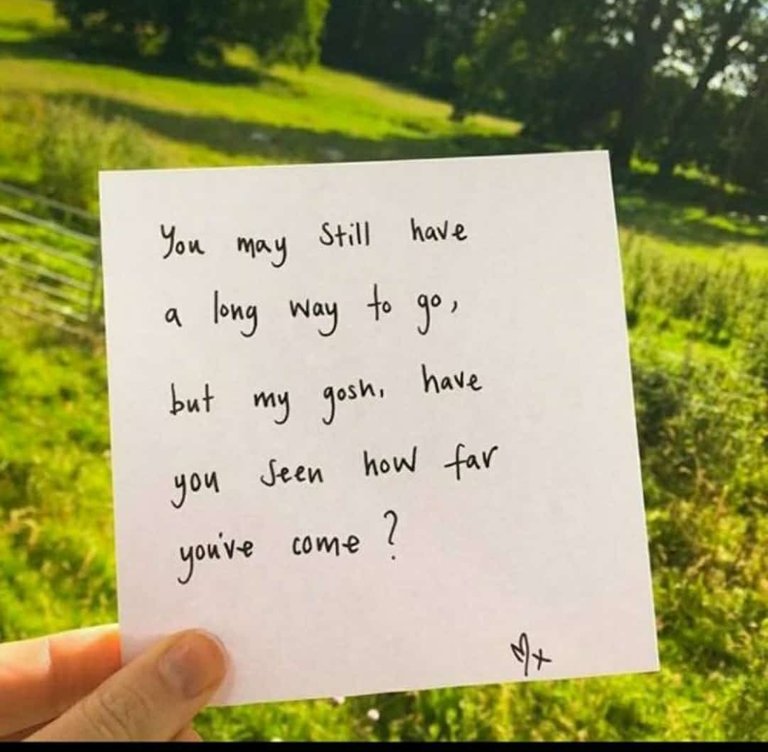 You may still have
a long way to go,
but my gosh, have
you seen how far
you've come?
♡x